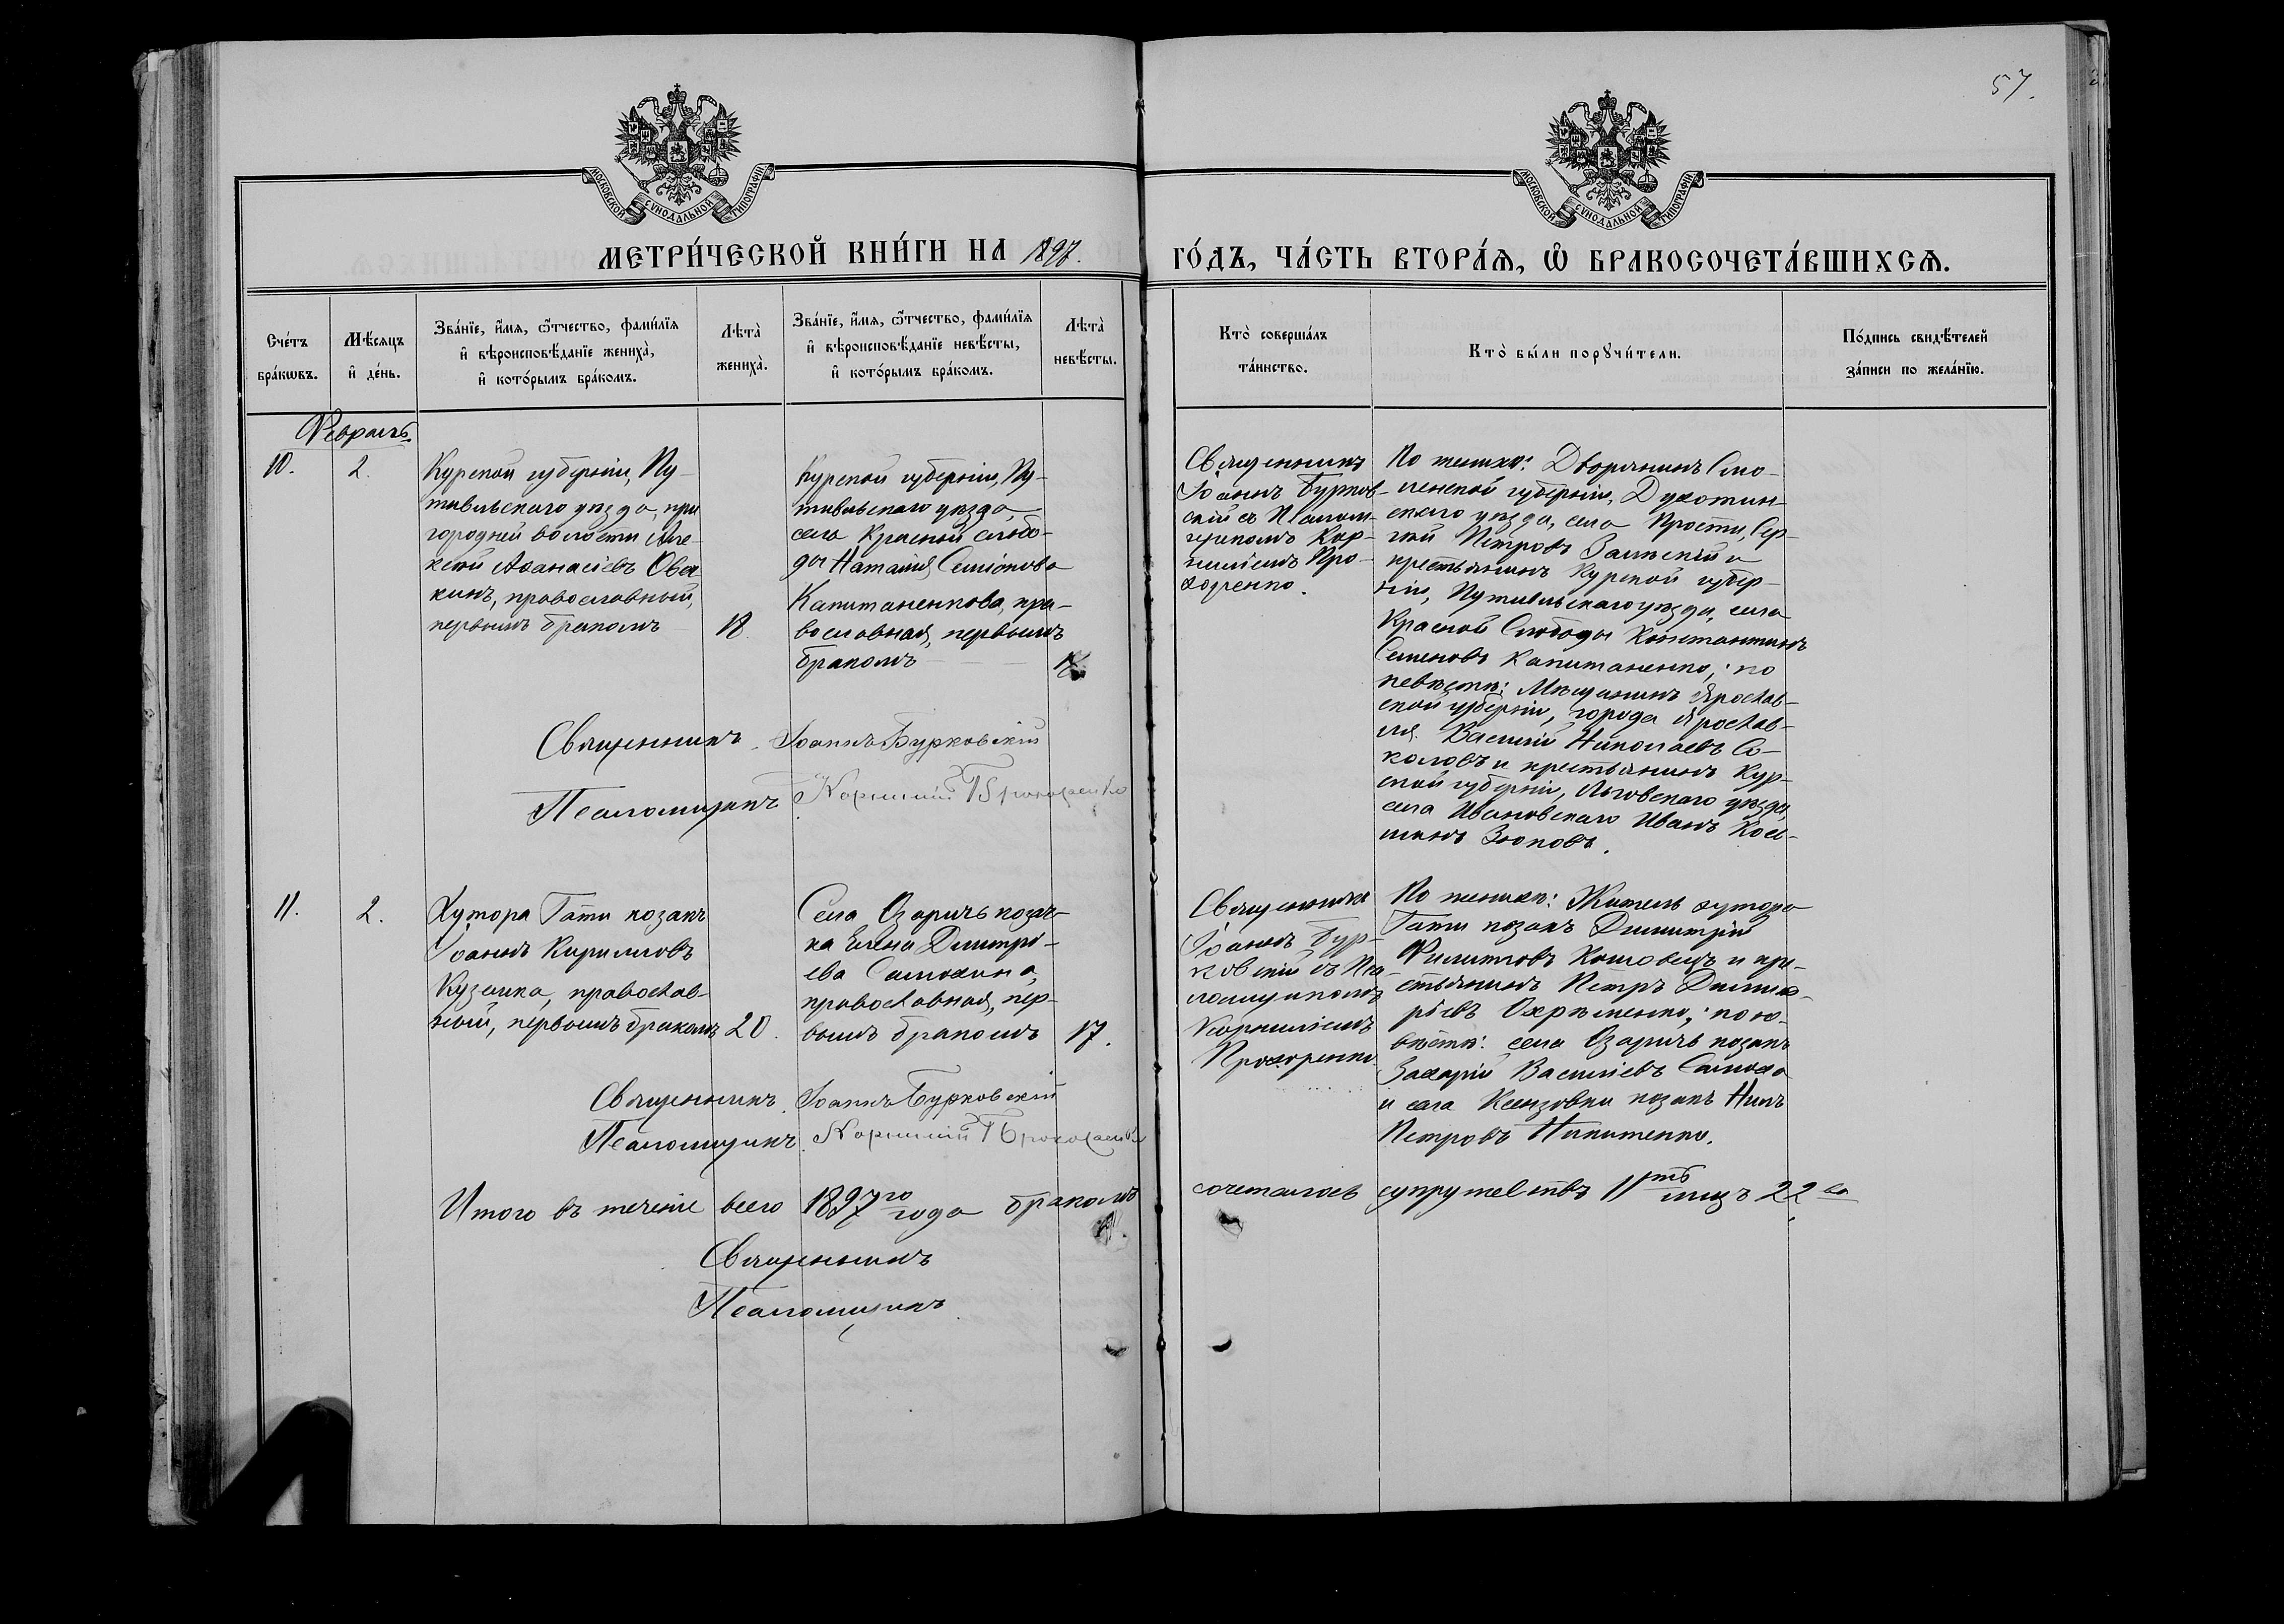 57.
МОСКОВСКОЙ СУНОДАЛЬНОЙ ТИПОГРАФИИ.
МОСКОВСКОЙ СУНОДАЛЬНОЙ ТИПОГРАФИИ.
МЕТРИ́ЧЕСКОЙ КНИ́ГИ НА 1897.
ГО́ДЪ, ЧА́СТЬ ВТОРА́Ѧ, Ѡ҆ БРАКОСОЧЕТА́ВШИХСѦ.
Сче́тъ
бра́кѡвъ.
Мѣ́сяцъ
и҆ де́нь.
Зва́нїе, и҆́мѧ, ѻ҆́тчество, фами́лїѧ
и҆ вѣроисповѣ́данїе жениха̀,
и҆ кото́рымъ бра́комъ.
Лѣта̀
жениха̀.
Зва́нїе, и҆́мѧ, ѻ҆́тчество, фами́лїѧ
и҆ вѣроисповѣ́данїе невѣ́сты,
и҆ кото́рымъ бра́комъ.
Лѣта̀
невѣ́сты.
Кто̀ соверша́лъ
та́инство.
Кто̀ бы́ли порꙋчи́тели.
По́дпись свидѣ́телей
за́писи по жела́нїю.
Февраль
10.
2.
Курской губерніи, Пу-
тивльскаго уѣзда, при
городней волости Але-
ксѣй Аѳанасіевъ Овся
кинъ, православный,
первымъ бракомъ
18.
Курской губерніи, Пу-
тивльскаго уѣзда,
села Красной слобо-
ды Наталія Семіонова
Капитаненкова, пра-
вославная, первымъ
бракомъ
Священникъ
Іоаннъ Бурков-
скій съ Псалом-
щикомъ Кор-
ниліемъ Про-
хоренко.
По женихѣ: Дворянинъ Смо-
ленской губерніи, Духотин-
скаго уѣзда, села Прости, Сер-
гѣй Петровъ Залѣскій и
крестьянинъ Курской губер-
ніи, Путивльскаго уѣзда, села
Красной Слободы Константинъ
Семеновъ Капитаненко; по
невѣстѣ: Мѣщанинъ Ярослав-
ской губерніи, города Ярослав-
ля Василій Николаевъ Со-
коловъ и крестьянинъ Кур-
ской губерніи, Льговскаго уѣзда,
села Ивановскаго Иванъ Коз-
минъ Зюповъ.
Священникъ Іоаннъ Бурковскій
Псаломщикъ Корнилій Прохоренко
11.
2.
Хутора Гати козакъ
Іоаннъ Кирилловъ
Куземка, православ-
ный, первымъ бракомъ
20.
Села Озаричъ козач-
ка Елена Димитрі-
ева Самохина,
православная, пер-
вымъ бракомъ
17.
Священникъ
Іоаннъ Бур-
ковскій съ Пса-
ломщикомъ
Корниліемъ
Прохоренко
По женихѣ: Житель хутора
Гати козакъ Димитрій
Филипповъ Кошовецъ и кре-
стьянинъ Петръ Димит-
ріевъ Охрѣменко; по не-
вѣстѣ: села Озаричъ козакъ
Захарій Василіевъ Самоха
и села Ксензовки козакъ Нилъ
Петровъ Никитенко.
Священникъ Іоаннъ Бурковскій
Псаломщикъ Корнилій Прохоренко
Итого въ теченіе всего 1897го года бракомъ сочеталось супружествъ 11ть лицъ 22ва
Священникъ
Псаломщикъ